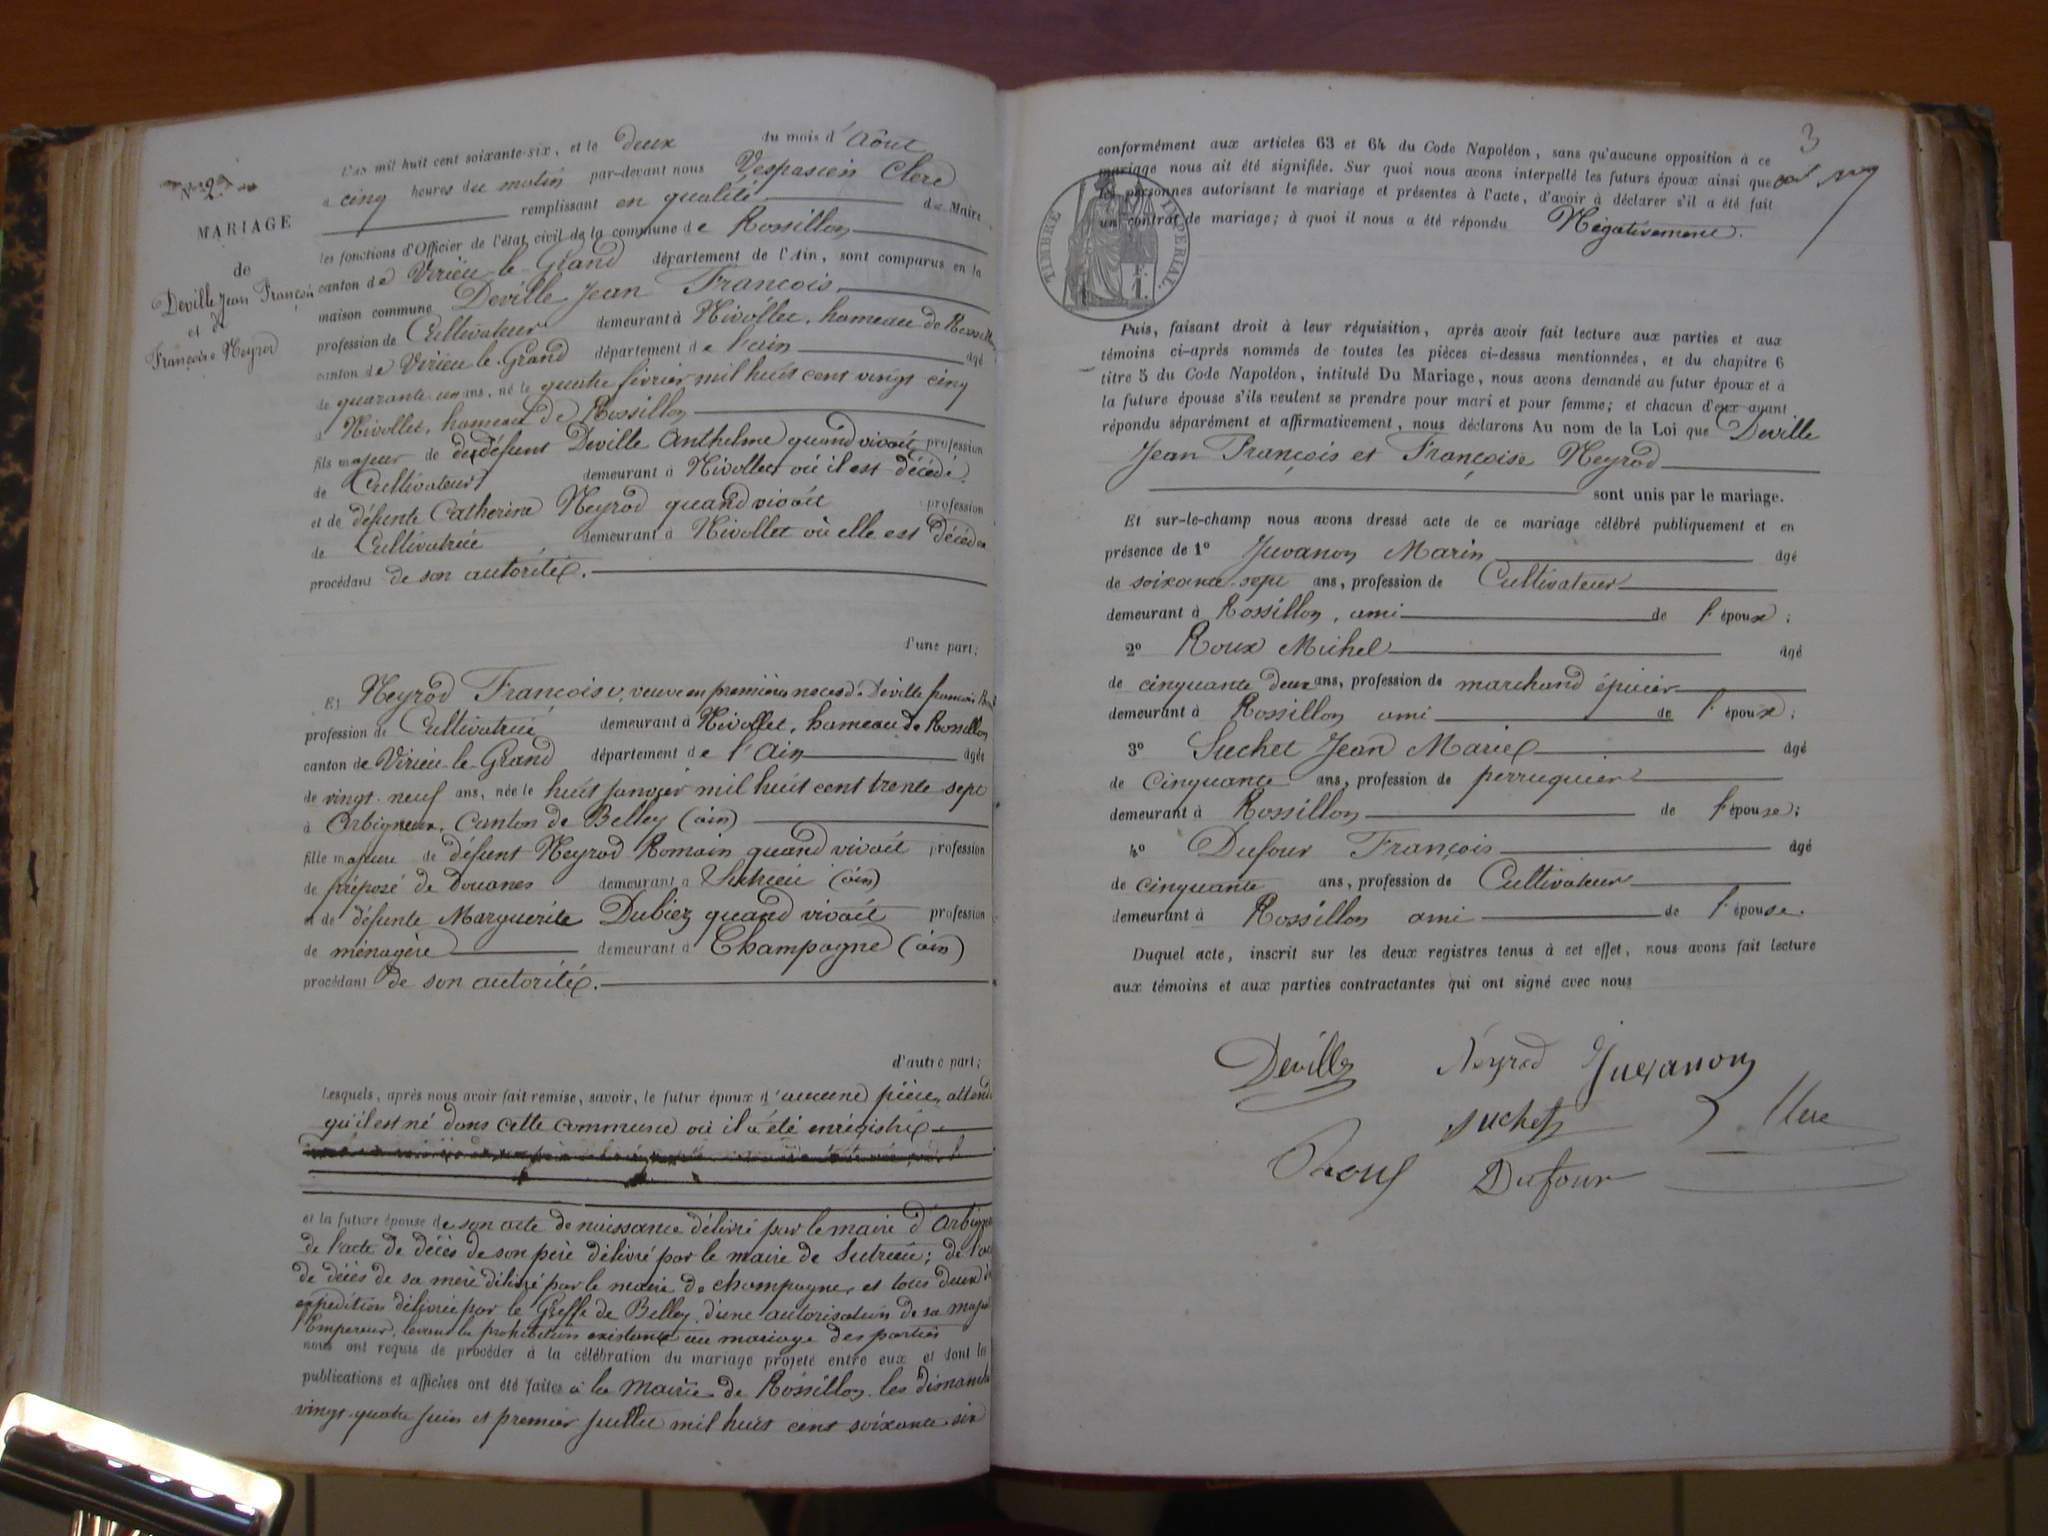 N° 2
MARIAGE
de
Deville Jean François
et de
Françoise Neyrod
L'an mil huit cent soixante-six, et le deux du mois d'Août
à cinq heures du matin par-devant nous Vespasien Clerc
remplissant en qualité de Maire
les fonctions d'Officier de l'état civil de la commune de Rossillon
canton de Virieu le Grand département de l'Ain, sont comparus en la
maison commune Deville Jean François
profession de Cultivateur demeurant à Nivollet, hameau de Rossillon
canton de Virieu le Grand département de l'ain âgé
de quarante un ans, né le quatre février mil huit cent vingt cinq
à Nivollet, hameau de Rossillon
fils majeur de défunt Deville Anthelme quand vivait profession
de Cultivateur demeurant à Nivollet où il est décédé
et de défunte Catherine Neyrod quand vivait profession
de Cultivatrice demeurant à Nivollet où elle est décédée
procédant de son autorité.
d'une part;
Et Neyrod Françoise, veuve en premières noces de Deville françois
profession de Cultivatrice demeurant à Nivollet, hameau de Rossillon
canton de Virieu-le-Grand département de l'Ain âgée
de vingt-neuf ans, née le huit janvier mil huit cent trente sept
à Arbignieu, Canton de Belley (ain)
fille majeure de défunt Neyrod Romain quand vivait profession
de préposé de Douanes demeurant à Sutrieu (ain)
et de défunte Marguerite Dubiez quand vivait profession
de ménagère demeurant à Champagne (ain)
procédant de son autorité.
d'autre part;
Lesquels, après nous avoir fait remise, savoir, le futur époux d'aucune pièce, attendu
qu'il est né dans cette commune où il a été enrégistré
et la future épouse de son acte de naissance délivré par le maire d'Arbignieu
de l'acte de décès de son père délivré par le maire de Sutrieu; de l'acte
de décès de sa mère délivré par le maire de champagne, et tous deux
expédition délivrée par le Greffe de Belley, d'une autorisation de sa majesté
l'Empereur, levant la prohibition existante au mariage des parties
nous ont requis de procéder à la célébration du mariage projeté entre eux et dont les
publications et affiches ont été faites à la Mairie de Rossillon les dimanches
vingt-quatre juin et premier juillet mil huit cent soixante-six
3
conformément aux articles 63 et 64 du Code Napoléon, sans qu'aucune opposition à ce
mariage nous ait été signifiée. Sur quoi nous avons interpellé les futurs époux ainsi que
les personnes autorisant le mariage et présentes à l'acte, d'avoir à déclarer s'il a été fait
un contrat de mariage; à quoi il nous a été répondu Négativement.
TIMBRE IMPERIAL.
1 F.
Puis, faisant droit à leur réquisition, après avoir fait lecture aux parties et aux
témoins ci-après nommés de toutes les pièces ci-dessus mentionnées, et du chapitre 6
titre 5 du Code Napoléon, intitulé Du Mariage, nous avons demandé au futur époux et à
la future épouse s'ils veulent se prendre pour mari et pour femme; et chacun d'eux ayant
répondu séparément et affirmativement, nous déclarons Au nom de la Loi que Deville
Jean François et Françoise Neyrod
sont unis par le mariage.
Et sur-le-champ nous avons dressé acte de ce mariage célébré publiquement et en
présence de 1° Juvanon Marin âgé
de soixante-sept ans, profession de Cultivateur
demeurant à Rossillon, ami de l'épouse;
2° Roux Michel âgé
de cinquante deux ans, profession de marchand épicier
demeurant à Rossillon ami de l'épouse;
3° Suchet Jean Marie âgé
de Cinquante ans, profession de perruquier
demeurant à Rossillon de l'épouse;
4° Dufour François âgé
de cinquante ans, profession de Cultivateur
demeurant à Rossillon ami de l'épouse.
Duquel acte, inscrit sur les deux registres tenus à cet effet, nous avons fait lecture
aux témoins et aux parties contractantes qui ont signé avec nous
Deville Neyrod Juvanon
Suchet Clerc
Roux Dufour